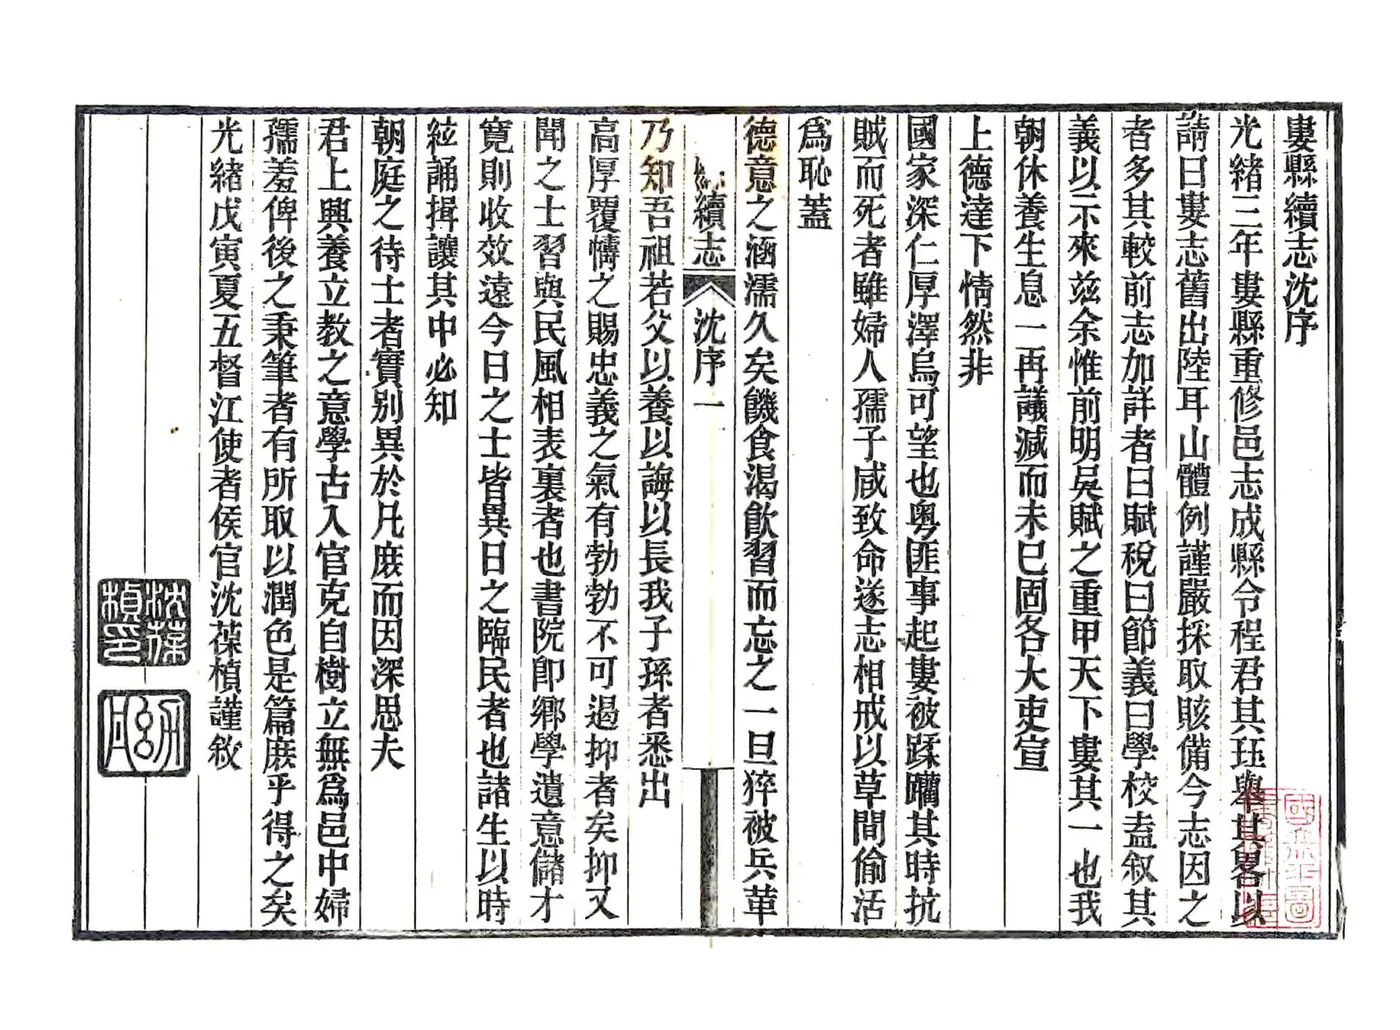 婁縣續志沈序
光緒三年婁縣重修邑志成縣令程君其珏舉其畧以
請曰婁志舊出陸耳山體例謹嚴採取賅備今志因之
者多其較前志加詳者曰賦稅曰節義曰學校盍叙其
義以示來兹余惟前明吳賦之重甲天下婁其一也我
朝休養生息一再議減而未已固各大吏宣
上德達下情然非
國家深仁厚澤烏可望也粤匪事起婁被蹂躪其時抗
賊而死者雖婦人孺子咸致命遂志相戒以草間偷活
爲恥蓋
德意之涵濡久矣饑食渴飲習而忘之一旦猝被兵革
續志
沈序一
乃知吾祖若父以養以誨以長我子孫者悉出
高厚覆幬之賜忠義之氣有勃勃不可遏抑者矣抑又
聞之士習與民風相表裏者也書院卽鄉學遺意儲才
寬則收效遠今日之士皆異日之臨民者也諸生以時
絃誦揖讓其中必知
朝庭之待士者實別異於凡庶而因深思夫
君上興養立教之意學古入官克自樹立無爲邑中婦
孺羞俾後之秉筆者有所取以潤色是篇庶乎得之矣
光緒戊寅夏五督江使者侯官沈葆楨謹敘
沈葆楨印